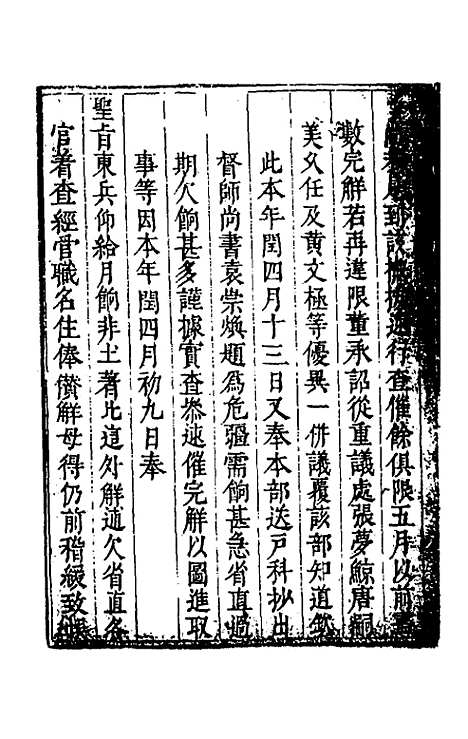 到該行查催餘俱限五月以前
數完解若再違限董承詔從重議處張夢鯨唐嗣
美久任及黃文極等優異一併議覆該部知道欽
此本年閏四月十三日又奉本部送戶科抄出
督師尚書袁崇煥題爲危疆需餉甚急省直過
期欠餉甚多謹據實查叅速催完解以圖進取
事等因本年閏四月初九日奉
聖旨東兵仰給月餉非土著比這外解逋欠省直各
官著查經管職名住俸儹解毋得仍前稽緩致